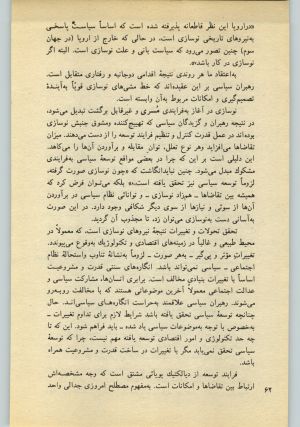 «در اروپا این نظر قاطعانه پذیرفته شده است که اساساً سیاست پاسخی
به‌نیروهای تاریخی نوسازی است، در حالی که خارج از اروپا (در جهان
سوم) چنین تصور می‌رود که سیاست بانی و علت نوسازی است. البته اگر
نوسازی در کار باشد».
به‌اعتقاد ما هر روندی نتیجهٔ اقدامی دوجانبه و رفتاری متقابل است.
رهبران سیاسی بر این عقیده‌اند که خط مشی‌های نوسازی قویاً به‌آیندهٔ
تصمیم‌گیری و امکانات مربوط به‌آن وابسته است.
نوسازی در آغاز به‌فرایندی قسری و غیرقابل برگشت تبدیل می‌شود،
در نتیجه رهبران و گزیدگان سیاسی که تهییج‌کننده و مشوق جنبش نوسازی
بوده‌اند در عمل قدرت کنترل و تنظیم فرایند توسعه را از دست می‌دهند. میزان
تقاضاها می‌افزاید وهر نوع تعلل، توان مقابله و برآوردن آن‌ها را می‌کاهد.
این دلیلی است بر این که چرا در بعضی مواقع توسعهٔ سیاسی به‌فرایندی
مشکوک مبدل می‌شود. چنین نبایدانگاشت که «چون نوسازی صورت گرفته،
لزوماً توسعه سیاسی نیز تحقق یافته است.» بلکه می‌توان فرض کرد که
همیشه بین تقاضاها ـ همزاد نوسازی ـ و توانائی نظام سیاسی در برآوردن
آن‌ها از سوئی و نیازها از سوی دیگر شکافی وجود دارد. در این صورت
به‌آسانی دست به‌نوسازی می‌توان زد، تا مجذوب آن گردید.
تحقق تحولات و تغییرات نتیجهٔ نیروهای نوسازی است، که معمولاً در
محیط طبیعی و غالباً در زمینه‌های اقتصادی و تکنولوژیک به‌وقوع می‌پیوندد.
تغییرات مؤثر و پی‌گیر ـ به‌هر صورت ـ لزوماً به‌نشانهٔ تناوب واستحالهٔ نظام
اجتماعی ـ سیاسی نمی‌تواند باشد. انگاره‌های سنتی قدرت و مشروعیت
اساساً با تغییرات بنیادی مخالف است. برابری انسان‌ها، مشارکت سیاسی و
عدالت اجتماعی معمولاً آخرین موضوعاتی هستند که با مخالفت روبه‌رو
می‌شوند. رهبران سیاسی علاقمند به‌حراست انگاره‌های سیاسی‌انـد. حال
چنانچه توسعه باید تحقق یافته باشد شرایط لازم برای تداوم تغییرات ـ
به‌خصوص با توجه به‌موضوعات سیاسی یاد شده ـ باید فراهم شود. این که تا
چه حد تکنولوژی و امور اقتصادی توسعه یافته مهم نیست، چرا که توسعهٔ
سیاسی تحقق نمی‌یابد مگر با تغییرات در ساخت قدرت و مشروعیت همراه
باشد.
فرایند توسعه از دیالکتیک پویائی مشتق است که وجه مشخصه‌اش
ارتباط بین تقاضاها و امکانات است. به‌مفهوم مصطلح امروزی جدالی واحد
۶۲